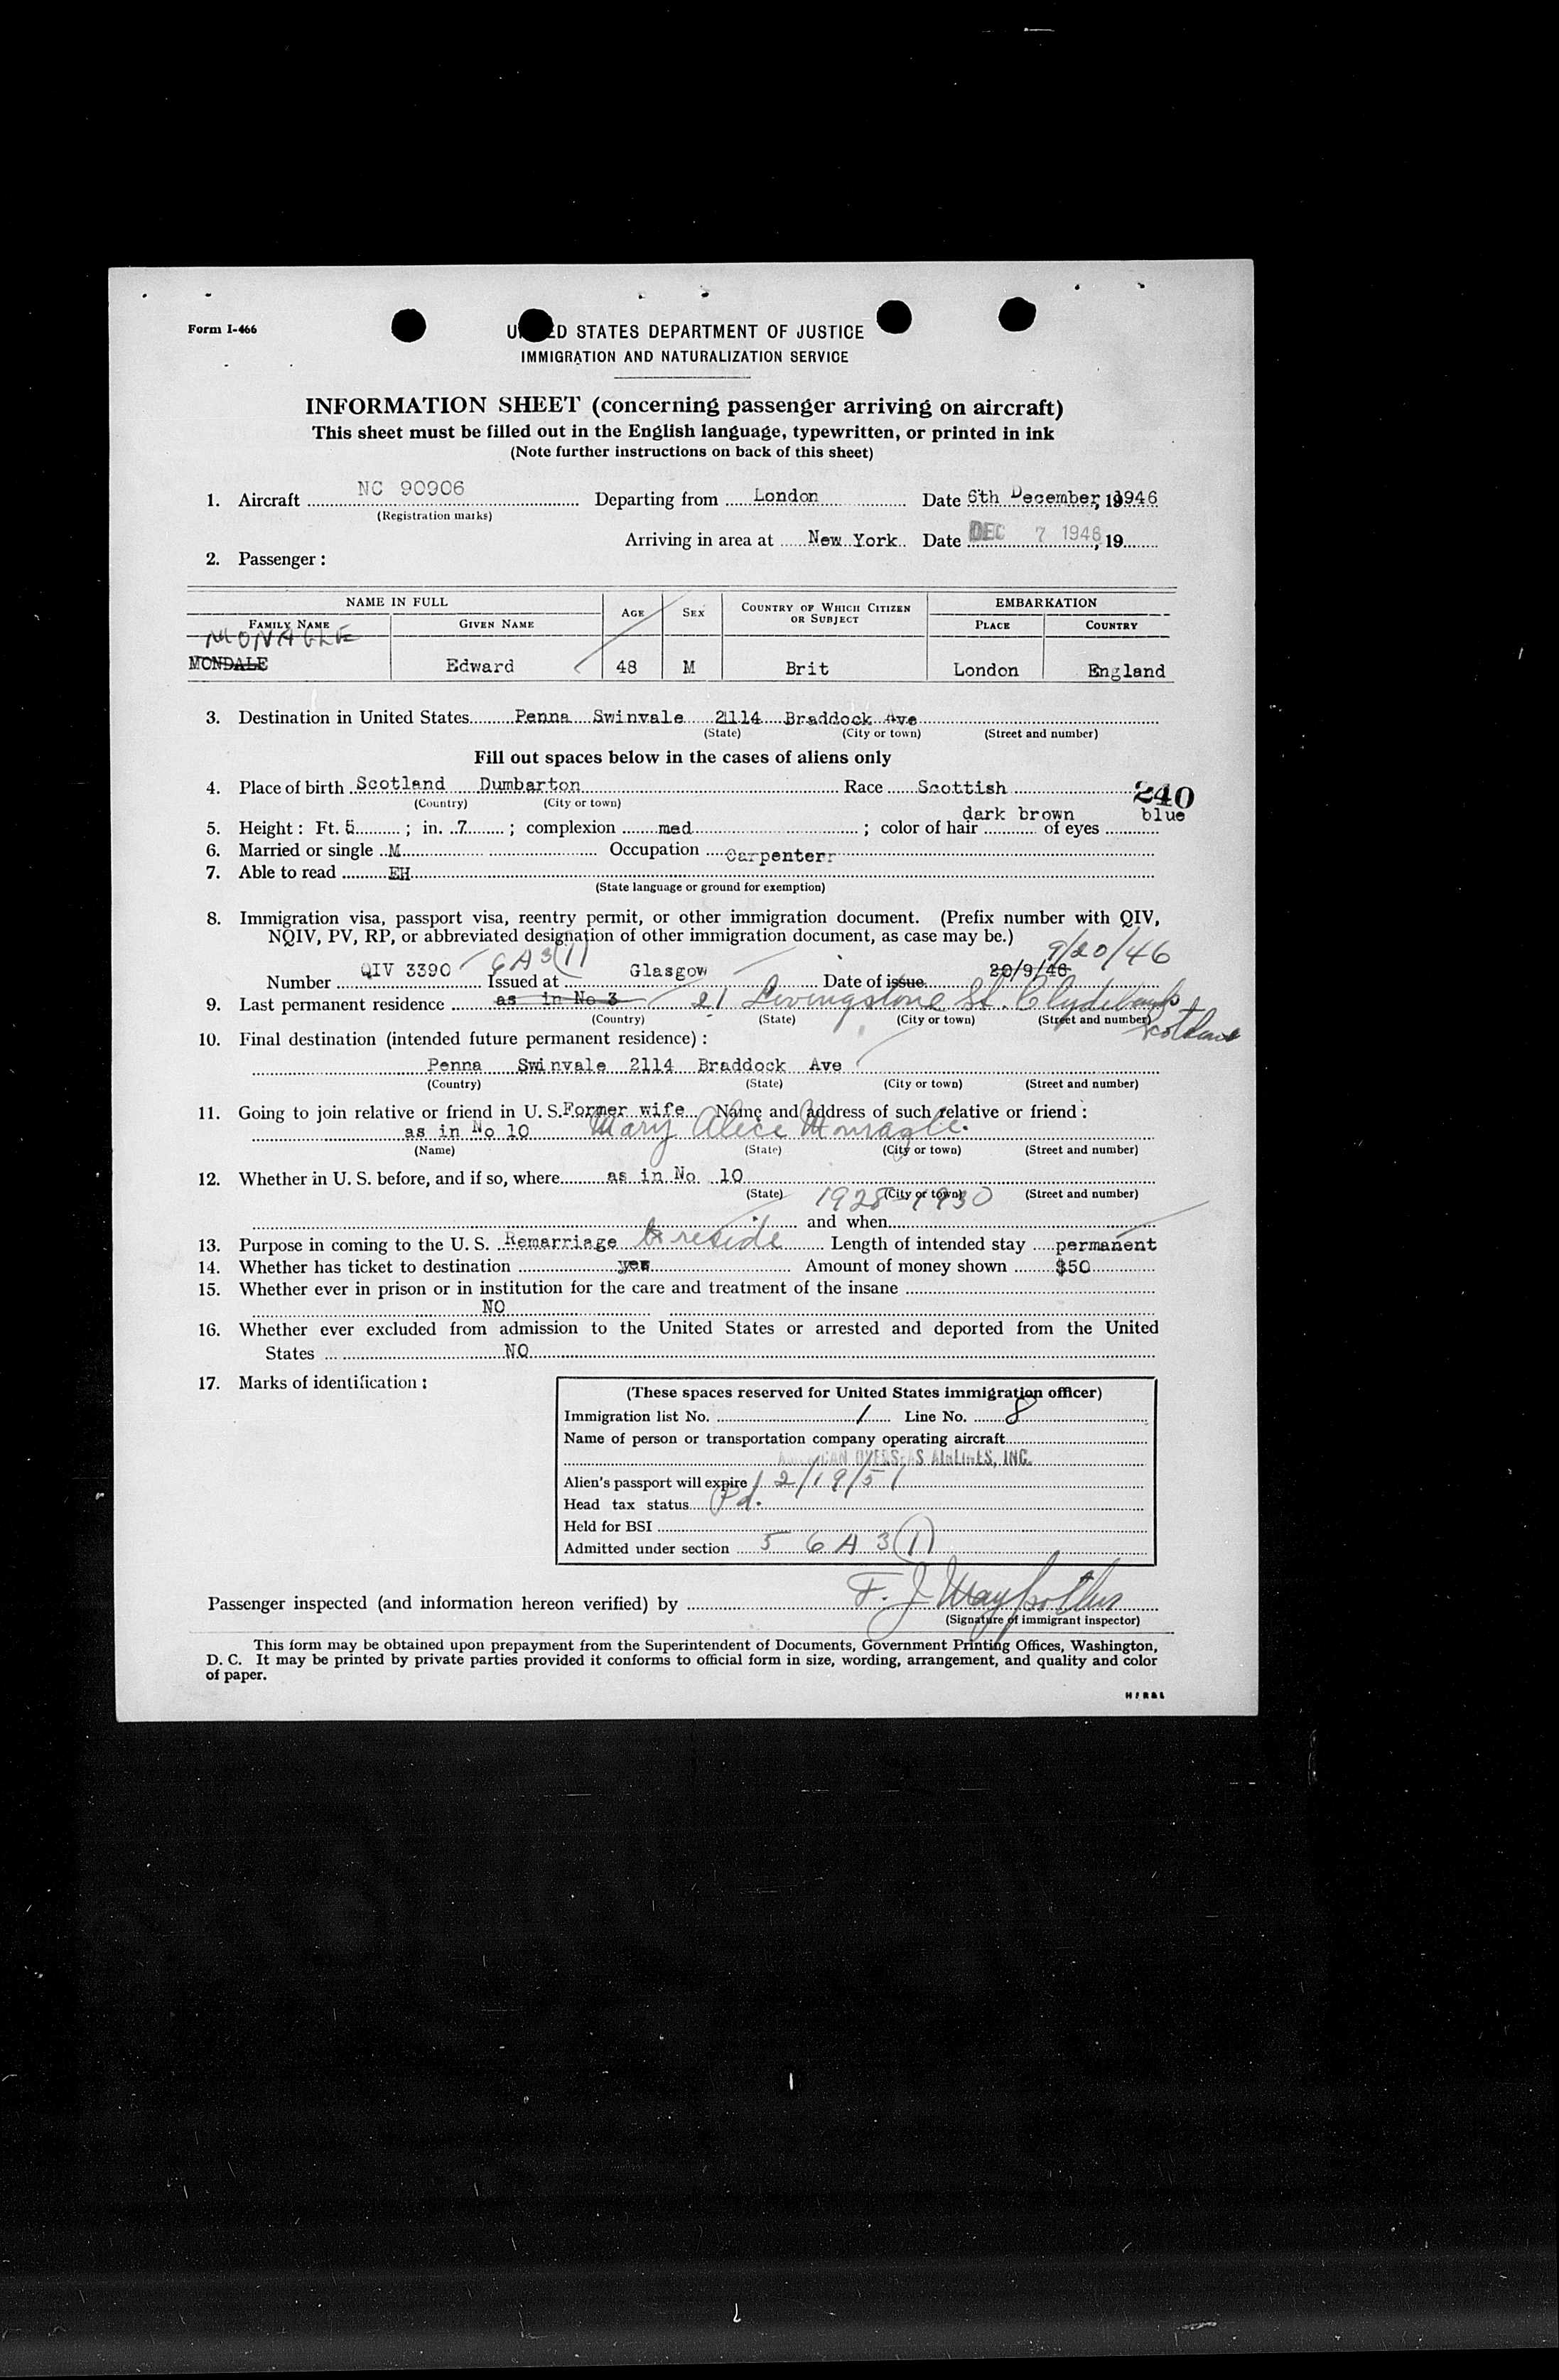 Form I-466
UNITED STATES DEPARTMENT OF JUSTICE
IMMIGRATION AND NATURALIZATION SERVICE
INFORMATION SHEET (concerning passenger arriving on aircraft)
This sheet must be filled out in the English language, typewritten, or printed in ink
(Note further instructions on back of this sheet)
1. Aircraft NC 90906 Departing from London Date 6th December, 1946
(Registration marks)
Arriving in area at New York Date DEC 7 1946, 19
2. Passenger :
NAME IN FULL AGE SEX COUNTRY OF WHICH CITIZEN OR SUBJECT EMBARKATION
FAMILY NAME GIVEN NAME PLACE COUNTRY
MONAGLE
MONDALE Edward 48 M Brit London England
3. Destination in United States Penna Swinvale 2114 Braddock Ave
(State) (City or town) (Street and number)
Fill out spaces below in the cases of aliens only
4. Place of birth Scotland Dumbarton Race Scottish 240
(Country) (City or town)
dark brown blue
5. Height : Ft. 5 ; in. 7 ; complexion med ; color of hair of eyes
6. Married or single M Occupation Carpenterr
7. Able to read EH
(State language or ground for exemption)
8. Immigration visa, passport visa, reentry permit, or other immigration document. (Prefix number with QIV,
NQIV, PV, RP, or abbreviated designation of other immigration document, as case may be.)
6A3(1) 9/20/46
Number QIV 3390 Issued at Glasgow Date of issue 20/9/46
9. Last permanent residence as in No 3 21 Livingstone St. Clydebank
Scotland
(Country) (State) (City or town) (Street and number)
10. Final destination (intended future permanent residence) :
Penna Swinvale 2114 Braddock Ave
(Country) (State) (City or town) (Street and number)
11. Going to join relative or friend in U. S. Former wife Name and address of such relative or friend :
as in No 10 Mary Alice Monagle.
(Name) (State) (City or town) (Street and number)
12. Whether in U. S. before, and if so, where as in No 10
(State) (City or town) (Street and number)
1928-1930
and when
13. Purpose in coming to the U. S. Remarriage to reside Length of intended stay permanent
14. Whether has ticket to destination yes Amount of money shown $50
15. Whether ever in prison or in institution for the care and treatment of the insane
NO
16. Whether ever excluded from admission to the United States or arrested and deported from the United
States NO
17. Marks of identification :
(These spaces reserved for United States immigration officer)
Immigration list No. 1 Line No. 8
Name of person or transportation company operating aircraft
AMERICAN OVERSEAS AIRLINES, INC.
Alien's passport will expire 12/19/51
Head tax status Pd.
Held for BSI
Admitted under section 5 6A3(1)
Passenger inspected (and information hereon verified) by F. J.
(Signature of immigrant inspector)
This form may be obtained upon prepayment from the Superintendent of Documents, Government Printing Offices, Washington,
D. C. It may be printed by private parties provided it conforms to official form in size, wording, arrangement, and quality and color
of paper.